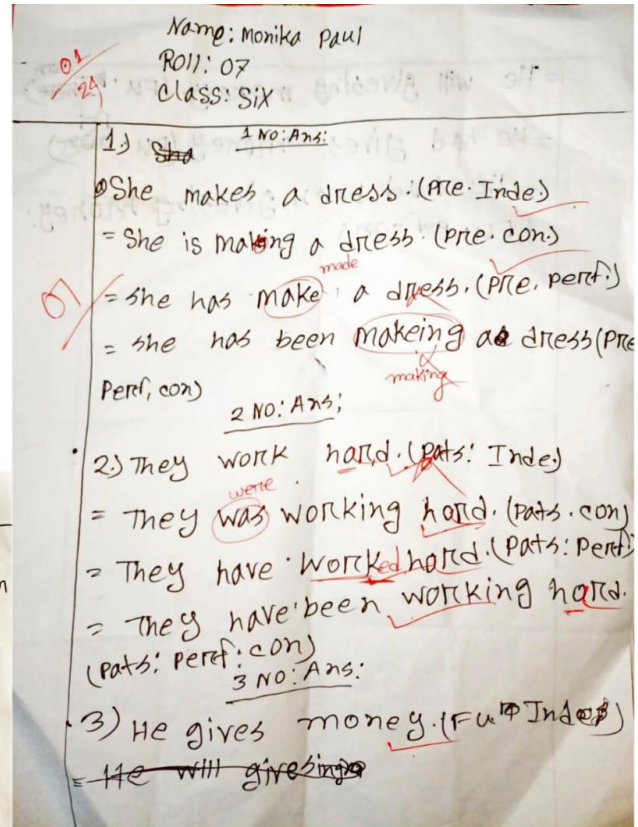 Name: Monika Paul
Roll: 07
Class: Six
01
24
1 No: Ans:
1.)
She makes a dress. (Pre. Inde)
= She is making a dress. (Pre. con:)
made
07
= She has make a dress. (Pre. perf:)
= she has been makeing a dress (Pre
making
Perf, con)
2 No: Ans;
2.) They work hard. (Pats: Inde.)
were
= They was working hard. (Pats. con)
= They have worked hard. (Pats: Perf:
= They have been working hard.
(Pats: perf: con)
3 No: Ans:
3) He gives money. (Fu Inde)
= He will givesing